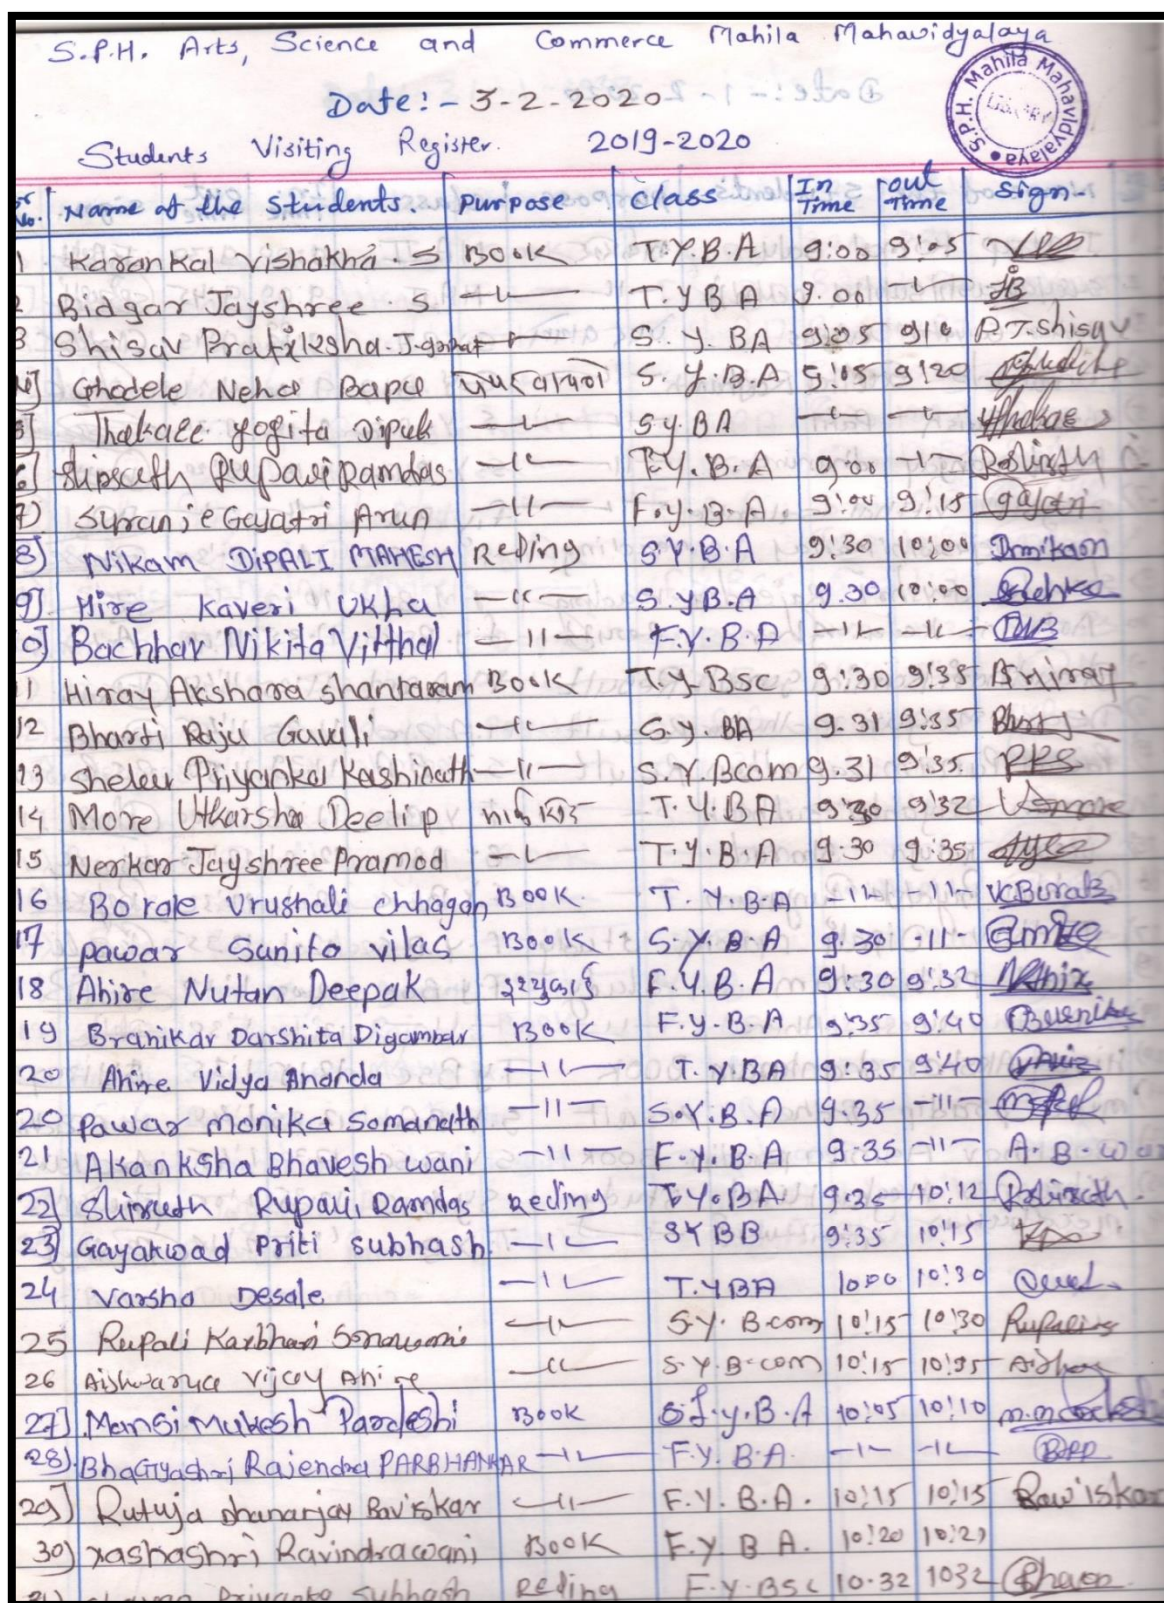 S.P.H. Arts, Science and Commerce Mahila Mahavidyalaya
Date:- 3-2-2020
S.P.H. Mahila Mahavidyalaya
LIBRARY
Students Visiting Register. 2019-2020
Sr No. Name of the Students. Purpose Class In Time out Time Sign-
1 Karankal Vishakha. S Book T.Y.B.A 9:00 9:05
2 Bidgar Jayshree. S. -"- T.Y B A 9.00 -"- JB
3. Shisav Pratiksha. J. S.Y. BA 9:05 910 P.T.Shisav
4] Ghodele Neha Bapu S.Y.B.A 9:05 9:20
5] Thakare yogita Dipak -"- S.Y.BA -"- -"-
6] Rupali Ramdas -"- T.Y.B.A 9:00 -"-
7) Suranje Gayatri Arun -"- F.Y.B.A. 9:00 9:15 gajatri
8] Nikam DIPALI MAHESH Reding S.Y.B.A 9:30 10:00
9]. Hire Kaveri Ukha -"- S.YB.A 9.30 10:00
0] Bachhav Nikita Vitthal -"- F.Y.B.A -"- -"-
11 Hiray Akshara shantaram Book T.Y.Bsc 9:30 9:35
12 Bharti Raju Gavali -"- S.Y. BA 9.31 9:35
13 Shelar Priyanka Kashinath -"- S.Y.Bcom 9.31 9:35
14 More Utkarsha Deelip T.Y.BA 9:30 9:32
15 Nerkar Jayshree Pramod -"- T.Y.B.A 9.30 9:35
16 Borale Vrushali chhagan Book. T.Y.B.A -"- -"-
17 pawar Sunita vilas Book S.Y.B.A 9.30 -"-
18 Ahire Nutan Deepak F.Y.B.A 9:30 9:32
19 Branikar Darshita Digambar Book F.Y.B.A 9:35 9:40
20 Ahire Vidya Ananda -"- T.Y.BA 9:35 9:40
20 pawar monika Somanath -"- S.Y.B.A 9.35 -"-
21 Akanksha Bhavesh wani -"- F.Y.B.A 9:35 -"- A.B.
22] Rupali Ramdas Reding T.Y.BA 9:35 10:12
23] Gayakwad Priti subhash. -"- SYBB 9:35 10:15
24 Varsha Desale -"- T.YBA 10:00 10:30
25 Rupali Karbhari -"- S.Y. B.com 10:15 10:30
26 Aishwarya Vijay Ahire -"- S.Y.B.com 10:15 10:35
27]. Mansi Mukesh Pardeshi Book S.Y.B.A 10:05 10:10
28). Bhagyashri Rajendra PARBHANKAR -"- F.Y.B.A. -"- -"-
29] Rutuja Dhananjay Baviskar -"- F.Y.B.A. 10:15 10:15 Baviskar
30) Yashashri Ravindra wani Book F.Y. B A. 10:20 10:21
Priyanka Subhash Reding F.Y.BSc 10.32 1032